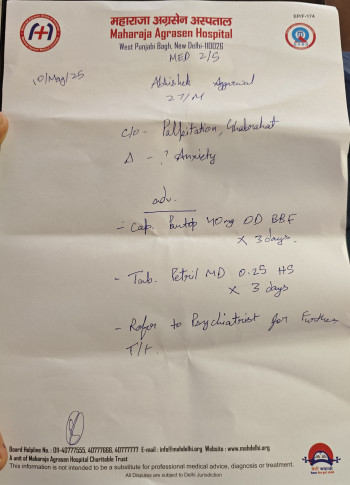 महाराजा अग्रसेन अस्पताल
EP/F-174
Maharaja Agrasen Hospital
West Punjabi Bagh, New Delhi-110026
MED 2/5
10/May/25
Abhishek Aggarwal
27/M
c/o - Palpitation, Ghabrahat
Δ - ? Anxiety
adv.
- Cap. Pantop 40mg OD BBF
x 3 days.
- Tab. Petril MD 0.25 HS
x 3 days
- Refer to Psychiatrist for Further
T/t.
Board Helpline No.: 011-40777555, 40777666, 40777777 E-mail: info@mahdelhi.org Website: www.mahdelhi.org
A unit of Maharaja Agrasen Hospital Charitable Trust
This information is not intended to be a substitute for professional medical advice, diagnosis or treatment.
All Disputes are subject to Delhi Jurisdiction